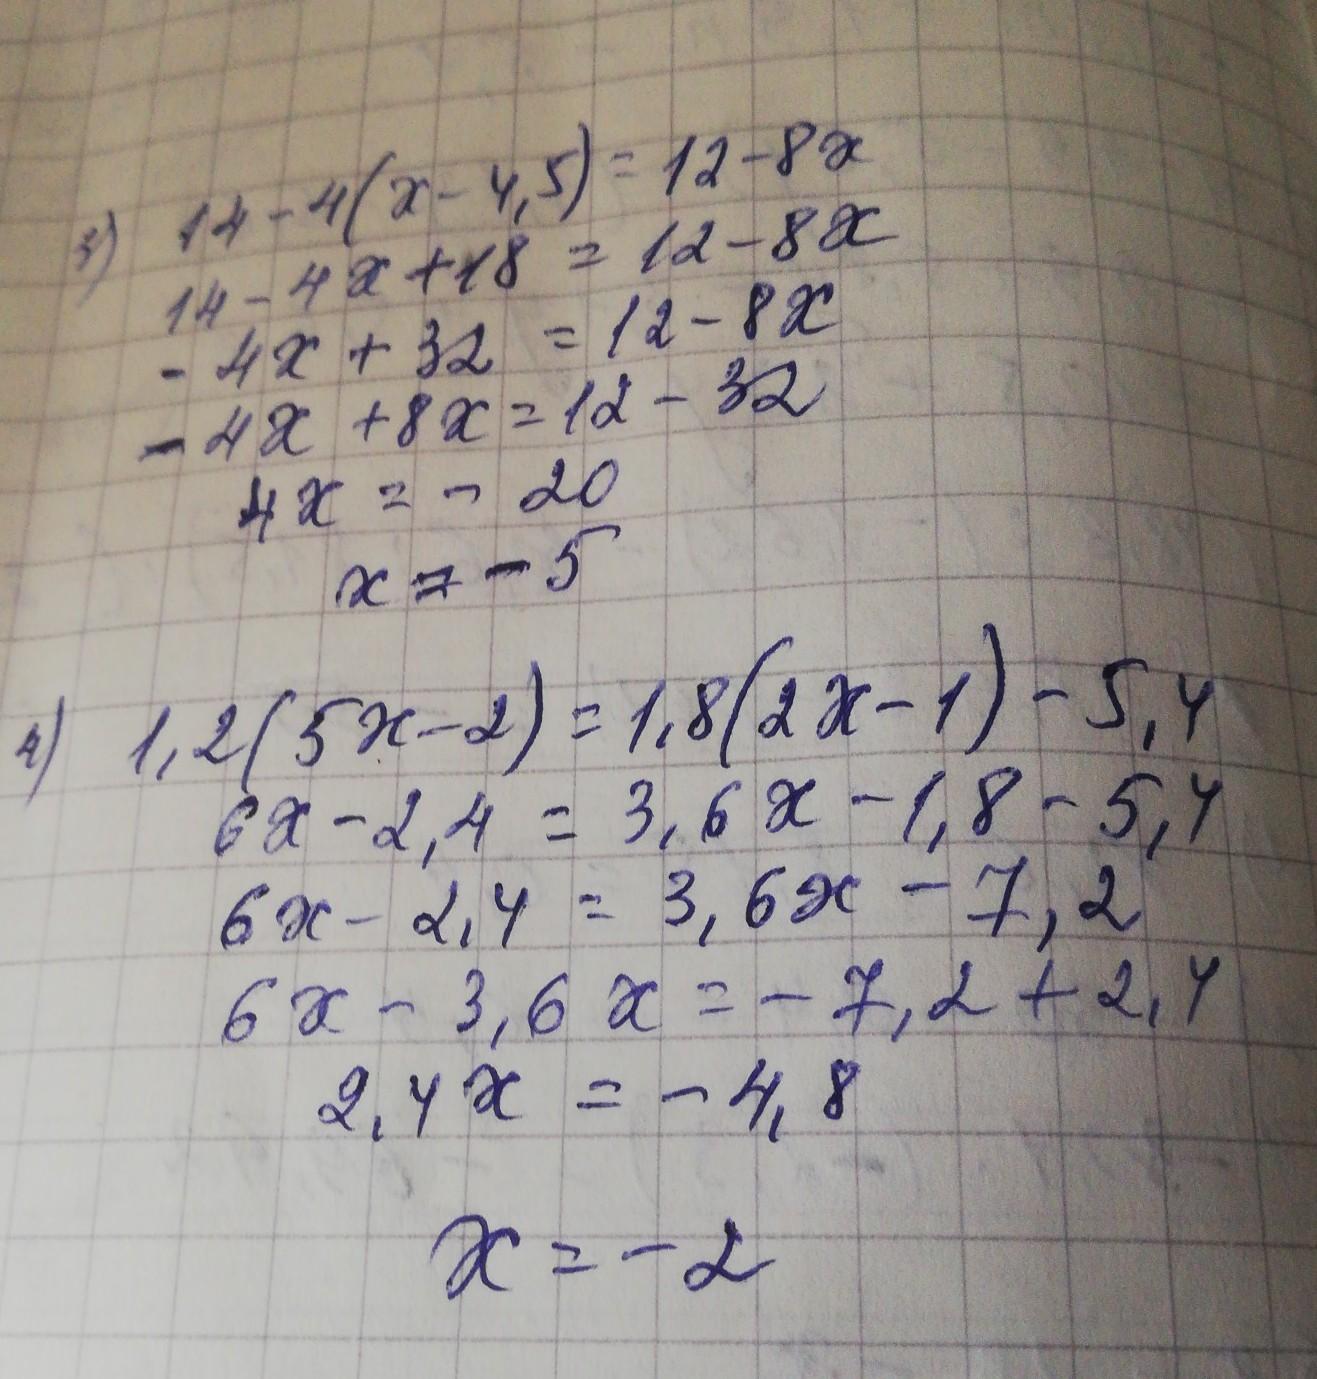 3) 14-4(x-4,5)=12-8x
14-4x+18=12-8x
-4x+32=12-8x
-4x+8x=12-32
4x=-20
x=-5
4) 1,2(5x-2)=1,8(2x-1)-5,4
6x-2,4=3,6x-1,8-5,4
6x-2,4=3,6x-7,2
6x-3,6x=-7,2+2,4
2,4x=-4,8
x=-2